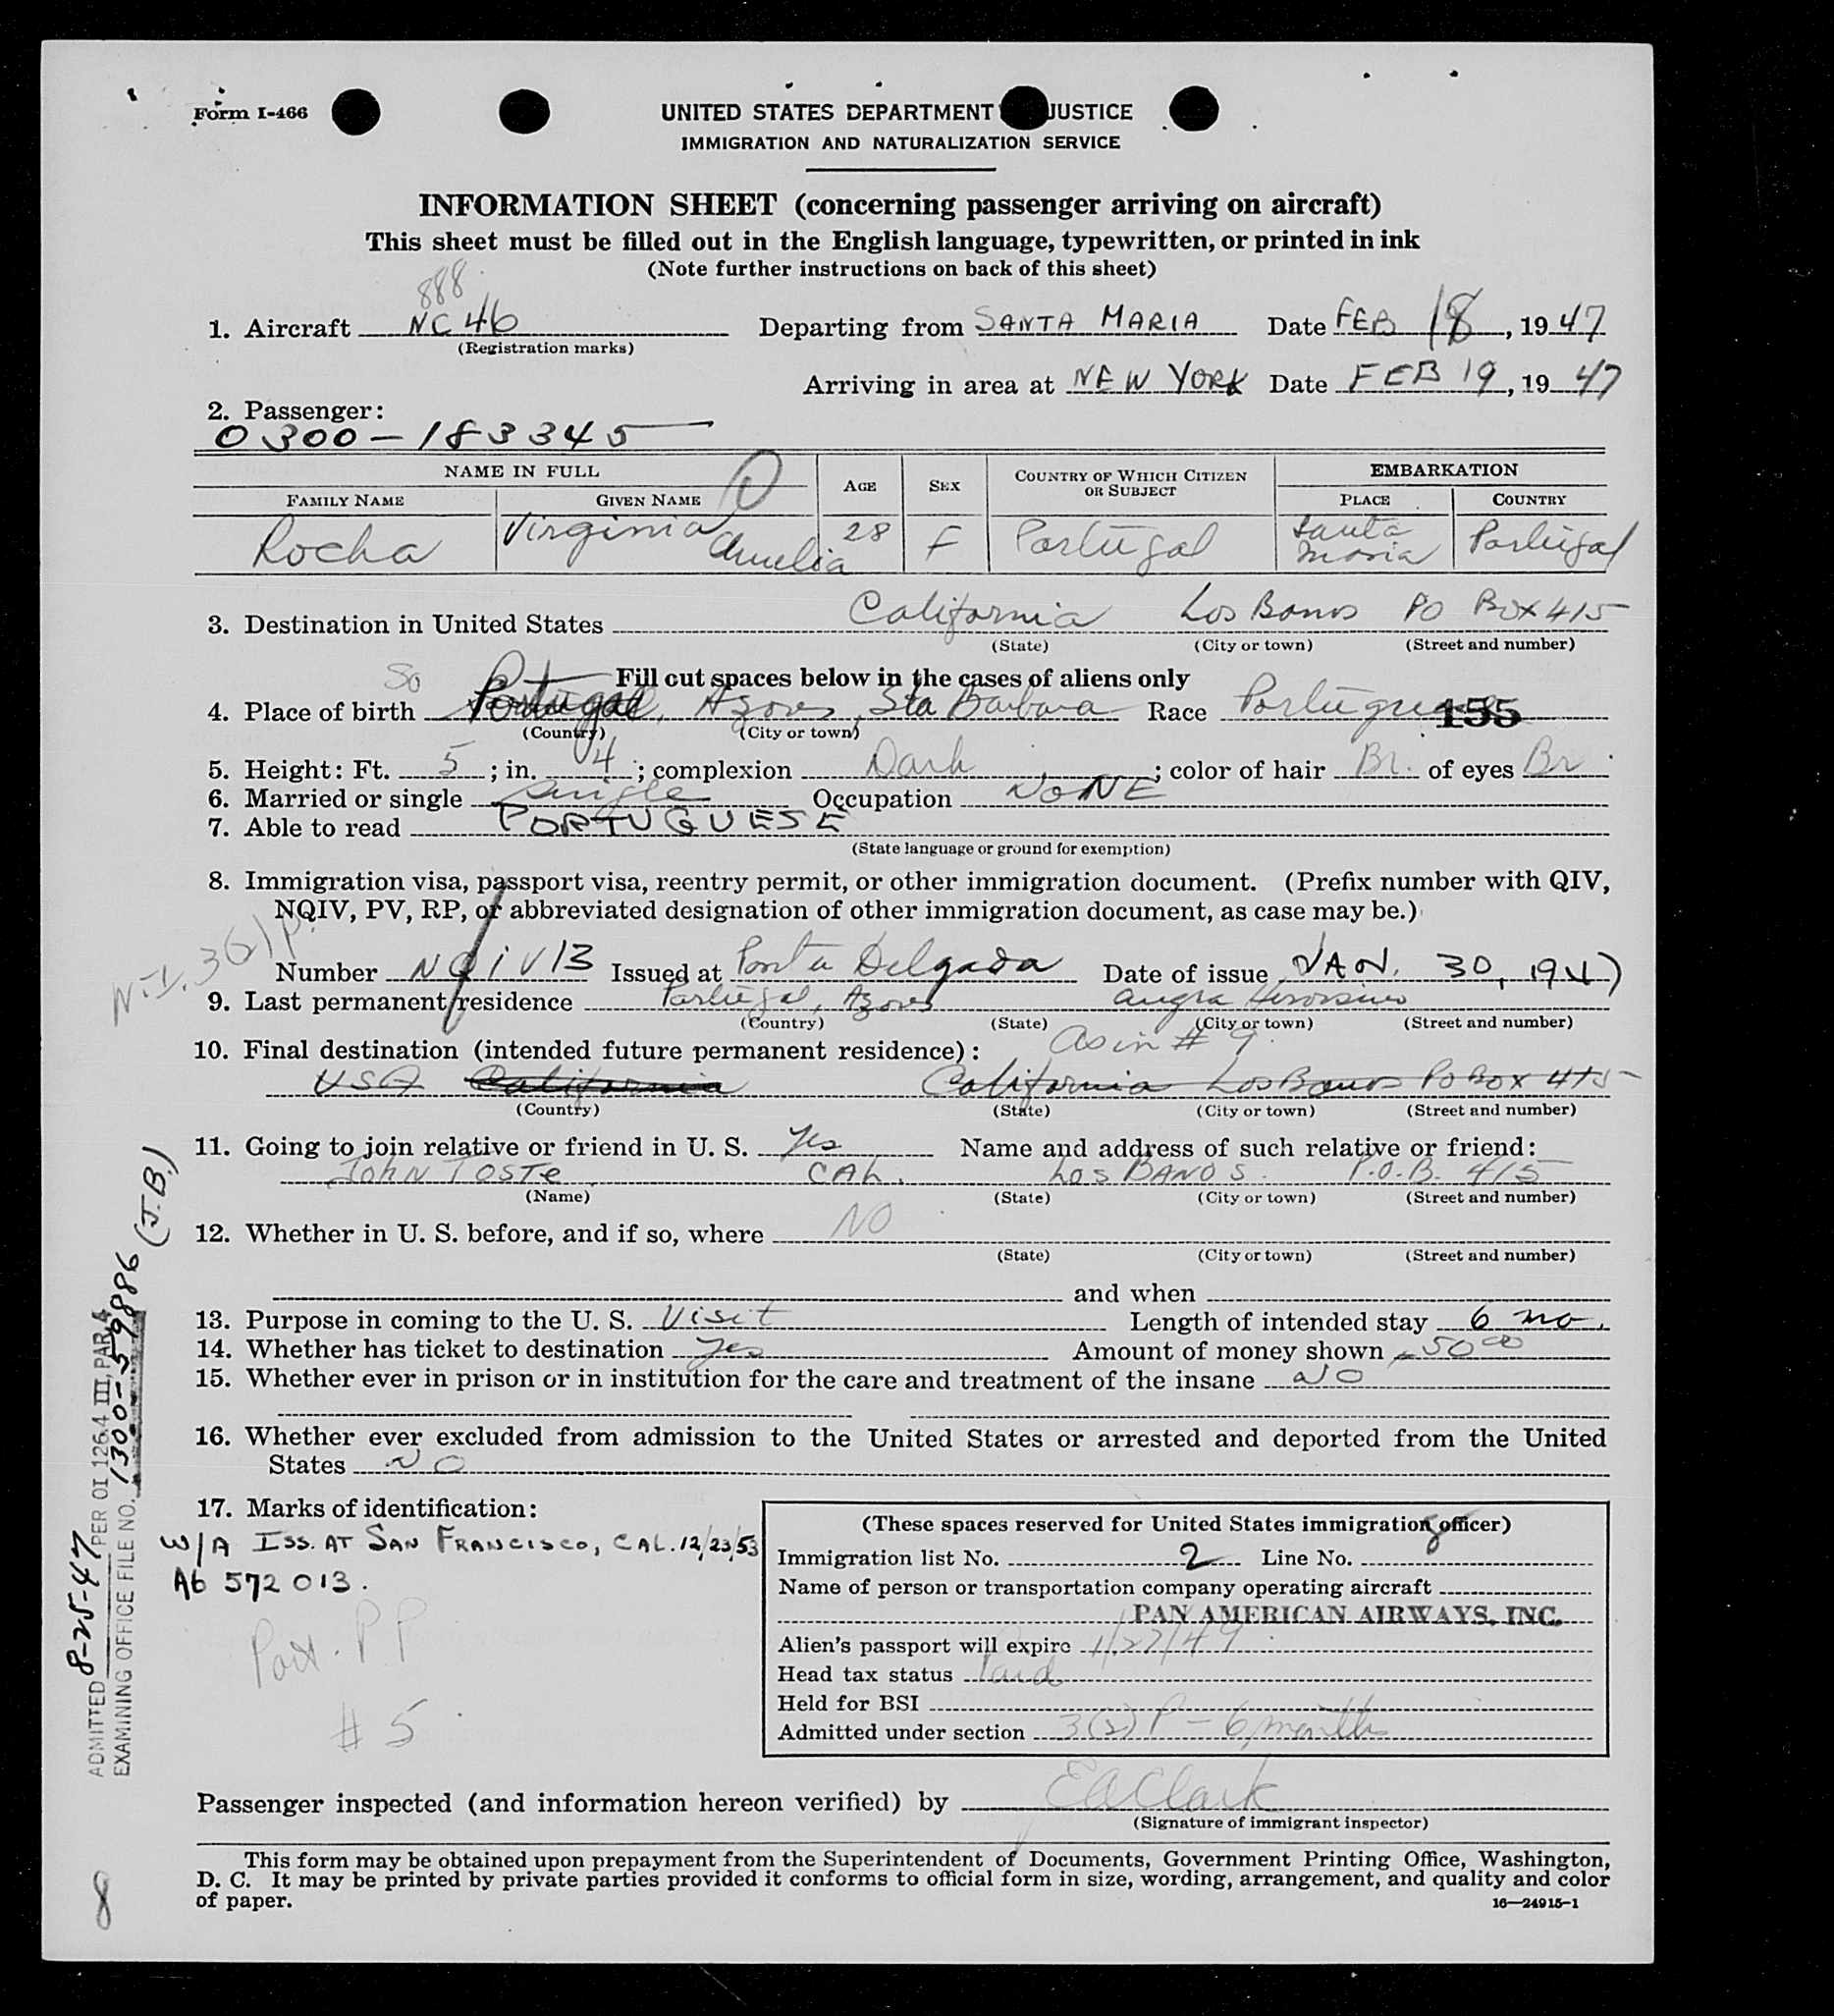 Form I-466
UNITED STATES DEPARTMENT JUSTICE
IMMIGRATION AND NATURALIZATION SERVICE
INFORMATION SHEET (concerning passenger arriving on aircraft)
This sheet must be filled out in the English language, typewritten, or printed in ink
(Note further instructions on back of this sheet)
888
1. Aircraft NC 46 Departing from SANTA MARIA Date FEB 18, 1947
(Registration marks)
Arriving in area at NEW YORK Date FEB 19, 1947
2. Passenger:
0300-183345
NAME IN FULL AGE SEX COUNTRY OF WHICH CITIZEN OR SUBJECT EMBARKATION
FAMILY NAME GIVEN NAME PLACE COUNTRY
Rocha Virginia Amelia 28 F Portugal Santa Maria Portugal
3. Destination in United States California Los Banos PO Box 415
(State) (City or town) (Street and number)
Fill out spaces below in the cases of aliens only
So
4. Place of birth Portugal, Azores, Sta Barbara Race Portuguese 155
(Country) (City or town)
5. Height: Ft. 5; in. 4; complexion Dark; color of hair Br. of eyes Br
6. Married or single single Occupation NONE
7. Able to read PORTUGUESE
(State language or ground for exemption)
8. Immigration visa, passport visa, reentry permit, or other immigration document. (Prefix number with QIV,
NQIV, PV, RP, or abbreviated designation of other immigration document, as case may be.)
Number NQIV 13 Issued at Ponta Delgada Date of issue JAN. 30, 1947
9. Last permanent residence Portugal, Azores Angra
(Country) (State) (City or town) (Street and number)
10. Final destination (intended future permanent residence): As in # 9
USA California California Los Banos PO Box 415
(Country) (State) (City or town) (Street and number)
11. Going to join relative or friend in U. S. Yes Name and address of such relative or friend:
JOHN TOSTE CAL. LOS BANOS. P.O.B. 415
(Name) (State) (City or town) (Street and number)
12. Whether in U. S. before, and if so, where NO
(State) (City or town) (Street and number)
and when
13. Purpose in coming to the U. S. Visit Length of intended stay 6 mo.
14. Whether has ticket to destination yes Amount of money shown 50 00
15. Whether ever in prison or in institution for the care and treatment of the insane NO
16. Whether ever excluded from admission to the United States or arrested and deported from the United
States NO
17. Marks of identification:
W/A ISS. AT SAN FRANCISCO, CAL. 12/23/53
A6 572 013.
Port. PP
# 5
(These spaces reserved for United States immigration officer)
Immigration list No. 2 Line No. 8
Name of person or transportation company operating aircraft
PAN AMERICAN AIRWAYS, INC.
Alien's passport will expire 1/27/49
Head tax status Paid
Held for BSI
Admitted under section 3(2) P - 6 months
Passenger inspected (and information hereon verified) by EA Clark
(Signature of immigrant inspector)
This form may be obtained upon prepayment from the Superintendent of Documents, Government Printing Office, Washington,
D. C. It may be printed by private parties provided it conforms to official form in size, wording, arrangement, and quality and color
of paper.
16—24915-1
ADMITTED 8-25-47 PER OI 126.4 III, PAR. 4
EXAMINING OFFICE FILE NO. 1300-59886 (J.B.)
8